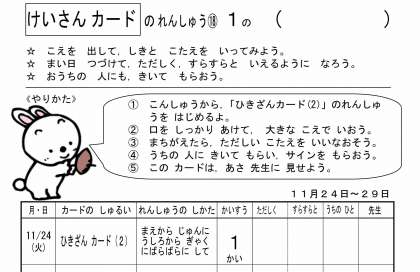 けいさん カード の れんしゅう⑱ 1 の （　　　　　）
☆ こえを 出して，しきと こたえを いってみよう。
☆ まい日 つづけて，ただしく，すらすらと いえるように なろう。
☆ おうちの 人にも，きいて もらおう。
《やりかた》
① こんしゅうから，「ひきざんカード(2)」のれんしゅ
うを はじめるよ。
② 口を しっかり あけて， 大きな こえで いおう。
③ まちがえたら，ただしい こたえを いいなおそう。
④ うちの 人に きいて もらい，サインを もらおう。
⑤ この カードは，あさ 先生に 見せよう。
１１月２４日～２９日
月・日 カードの しゅるい れんしゅうの しかた かいすう ただしく すらすらと うちの ひと 先生
11/24
(火)
ひきざん カード (2)
まえから じゅんに
うしろから ぎゃく
にばらばらに して
1
かい